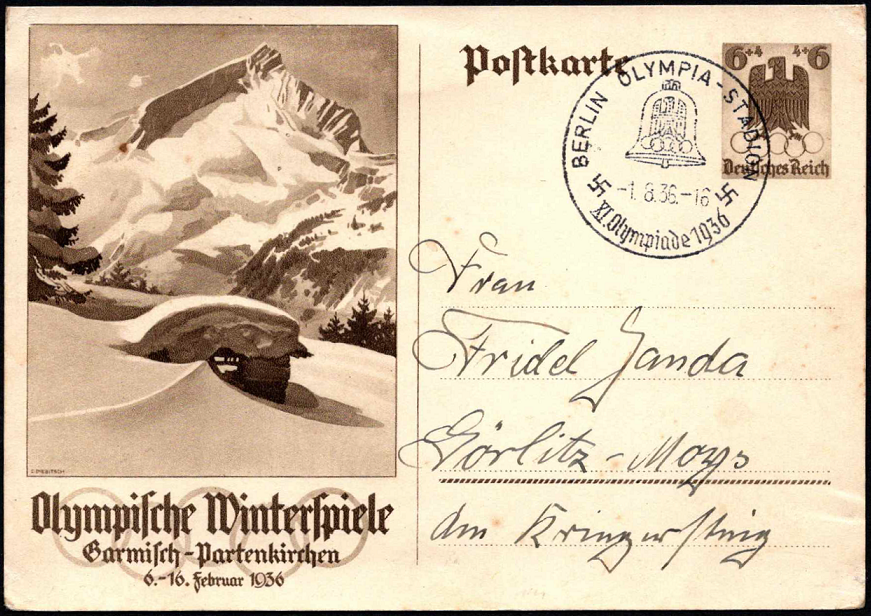 Postkarte
6+4 4+6
Deutsches Reich
BERLIN OLYMPIA-STADION
-1.8.36.-16
XI. Olympiade 1936
Frau
Fridel Janda
Görlitz-Moys
Am
Olympische Winterspiele
Garmisch-Partenkirchen
6.-16. Februar 1936